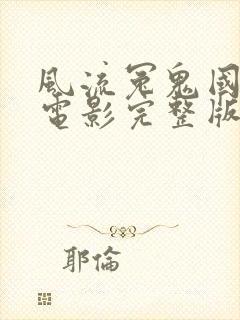 風流冤鬼國
電影完整版
耶倫